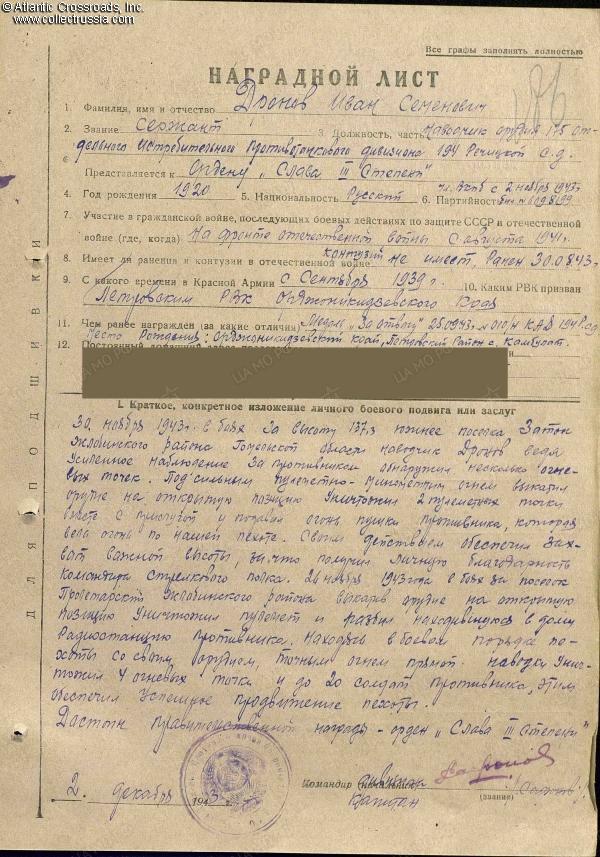 © Atlantic Crossroads, Inc.
www.collectrussia.com
Все графы заполнять полностью
186
НАГРАДНОЙ ЛИСТ
1. Фамилия, имя и отчество Дронов Иван Семенович
2. Звание Сержант 3. Должность, часть Наводчик орудия 175 от-
дельного истребительного противотанкового дивизиона 194 Речицкой с.д.
Представляется к Ордену „Слава III Степени"
4. Год рождения 1920 5. Национальность Русский 6. Партийность чл. ВКПб с 2 ноября 1943г.
7. Участие в гражданской войне, последующих боевых действиях по защите СССР и отечественной
войне (где, когда) На фронте отечественной войны с августа 1941г.
8. Имеет ли ранения и контузии в отечественной войне контузий не имеет. Ранен 30.08.43г
9. С какого времени в Красной Армии с Сентября 1939 г. 10. Каким РВК призван
Петровским РВК Орджоникидзевского Края
11. Чем ранее награжден (за какие отличия) Медаль „За отвагу" 25.09.43г. 194 с.д.
Место Рождения: Орджоникидзевский край, Петровский Район с. Камбулат.
12. Постоянный домашний адрес
I. Краткое, конкретное изложение личного боевого подвига или заслуг
30 ноября 1943г. в боях за высоту 137,3 южнее поселка Затон
Жлобинского района Гомельской области наводчик Дронов ведя
усиленное наблюдение за противником обнаружил несколько огне-
вых точек. Под сильным пулеметно-минометным огнем выкатил
орудие на открытую позицию уничтожил 2 пулеметных точки
вместе с прислугой и подавил огонь пушки противника, которая
вела огонь по нашей пехоте. Своим действием обеспечил зах-
ват важной высоты, за что получил личную благодарность
командира стрелкового полка. 24 ноября 1943 года в боях за поселок
Пролетарский Жлобинского района выкатив орудие на открытую
позицию уничтожил пулемет и разбил находившуюся в дому
радиостанцию противника. Находясь в боевом порядке пе-
хоты со своим орудием, точным огнем прямой наводки унич-
тожил 4 огневых точки и до 20 солдат противника, этим
обеспечил успешное продвижение пехоты.
Достоин правительственной награды - орден „Слава III Степени"
Командир (начальник) дивизиона
Капитан
(звание)
2. декабря 1943 г.
ДЛЯ ПОДШИВКИ